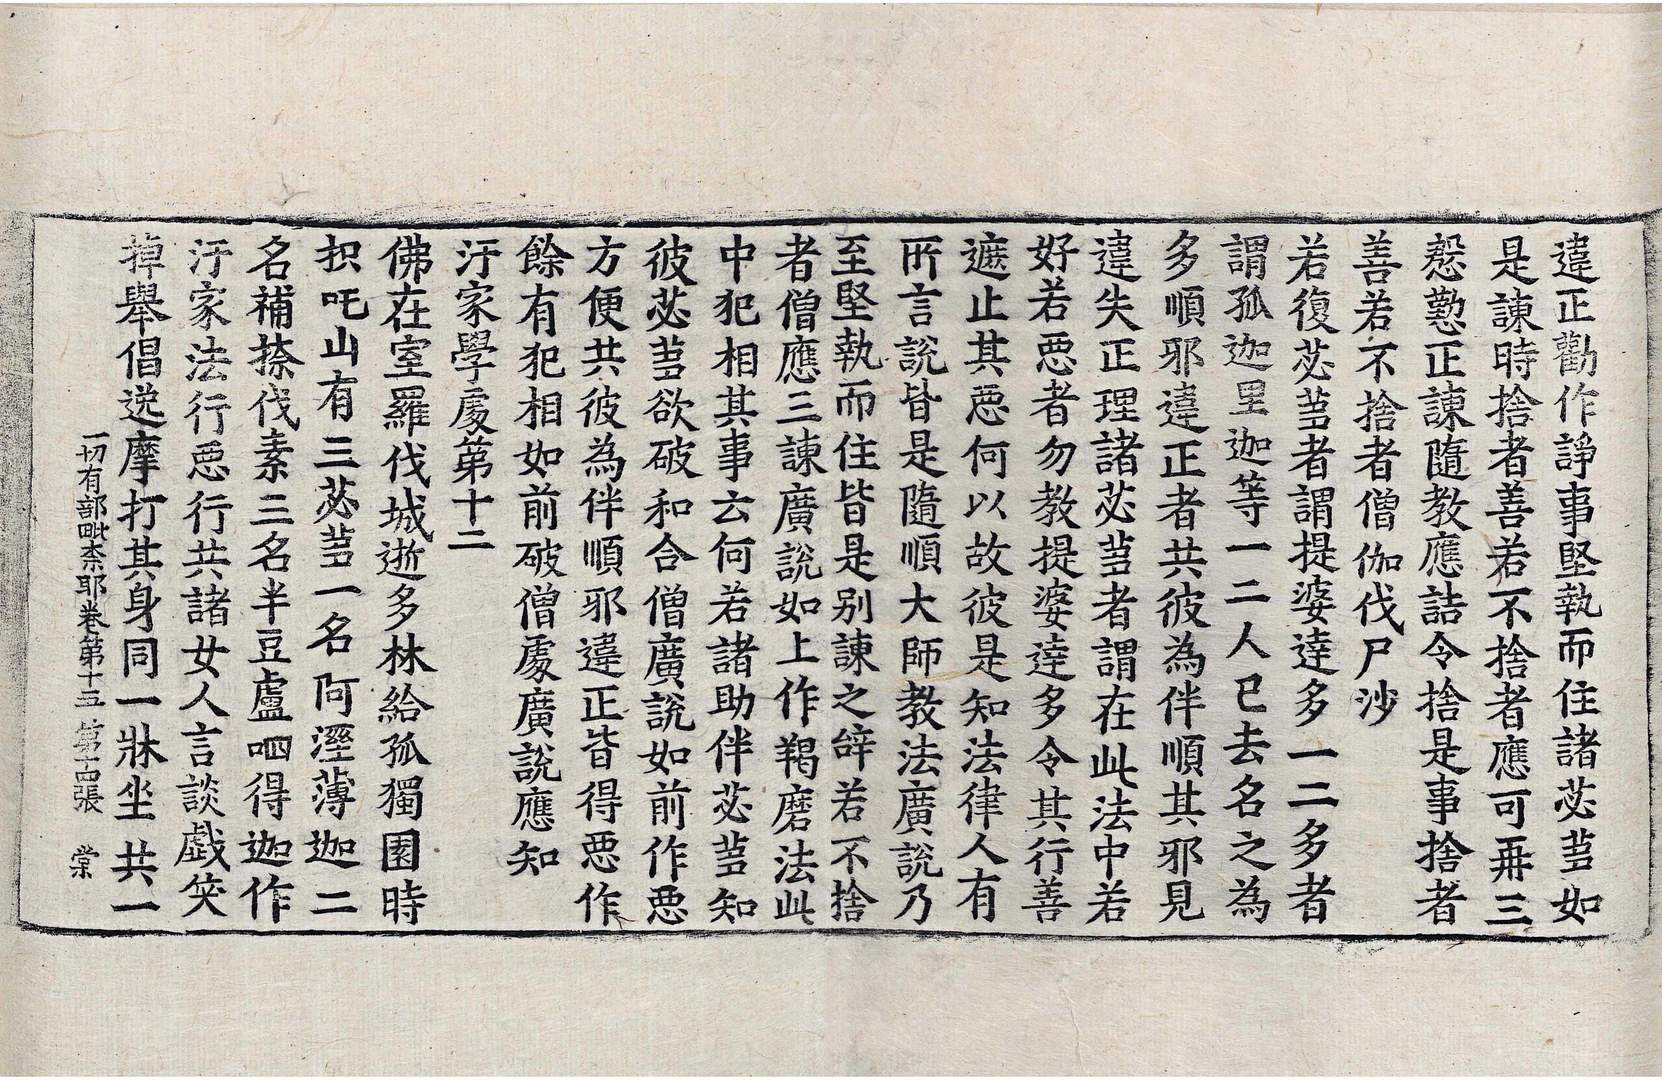 違正勸作諍事堅執而住諸苾芻如
是諫時捨者善若不捨者應可再三
慇懃正諫隨教應詰令捨是事捨者
善若不捨者僧伽伐尸沙
若復苾芻者謂提婆達多一二多者
謂孤迦里迦等一二人已去名之為
多順邪違正者共彼為伴順其邪見
違失正理諸苾芻者謂在此法中若
好若惡者勿教提婆達多令其行善
遮止其惡何以故彼是知法律人有
所言說皆是隨順大師教法廣說乃
至堅執而住皆是別諫之辝若不捨
者僧應三諫廣說如上作羯磨法此
中犯相其事云何若諸助伴苾芻知
彼苾芻欲破和合僧廣說如前作惡
方便共彼為伴順邪違正皆得惡作
餘有犯相如前破僧處廣說應知
汙家學處第十二
佛在室羅伐城逝多林給孤獨園時
枳吒山有三苾芻一名阿溼薄迦二
名補捺伐素三名半豆盧呬得迦作
汙家法行惡行共諸女人言談戲笑
掉舉倡逸摩打其身同一牀坐共一
一切有部毗柰耶卷第十五 第十四張 棠